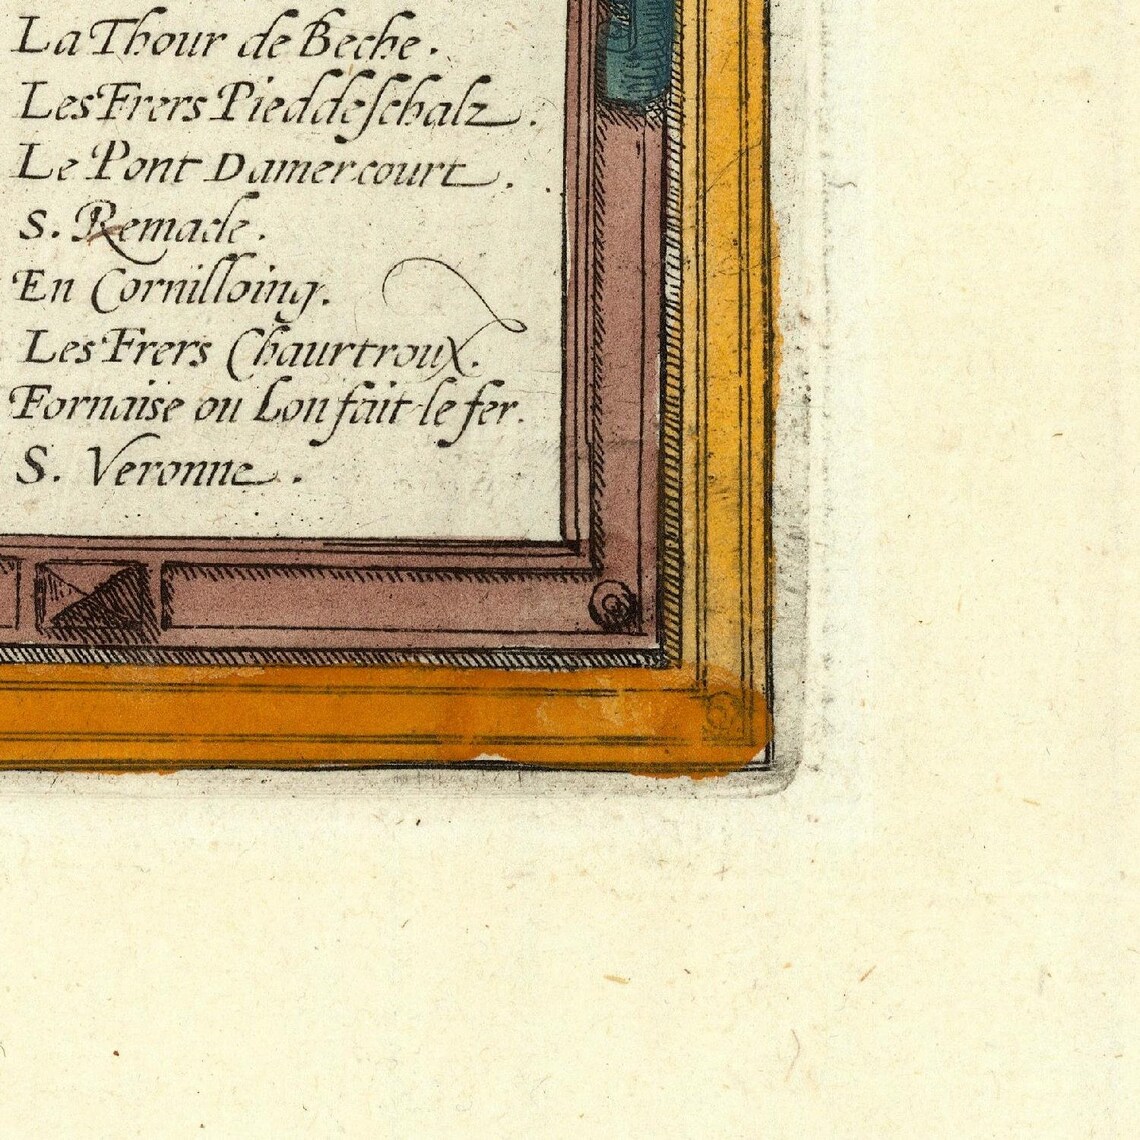 La Thour de Beche.
Les Frers Pieddeschalz.
Le Pont Damercourt.
S. Remacle.
En Cornilloing.
Les Frers Chaurtroux.
Fornaise ou Lon fait le fer.
S. Veronne.